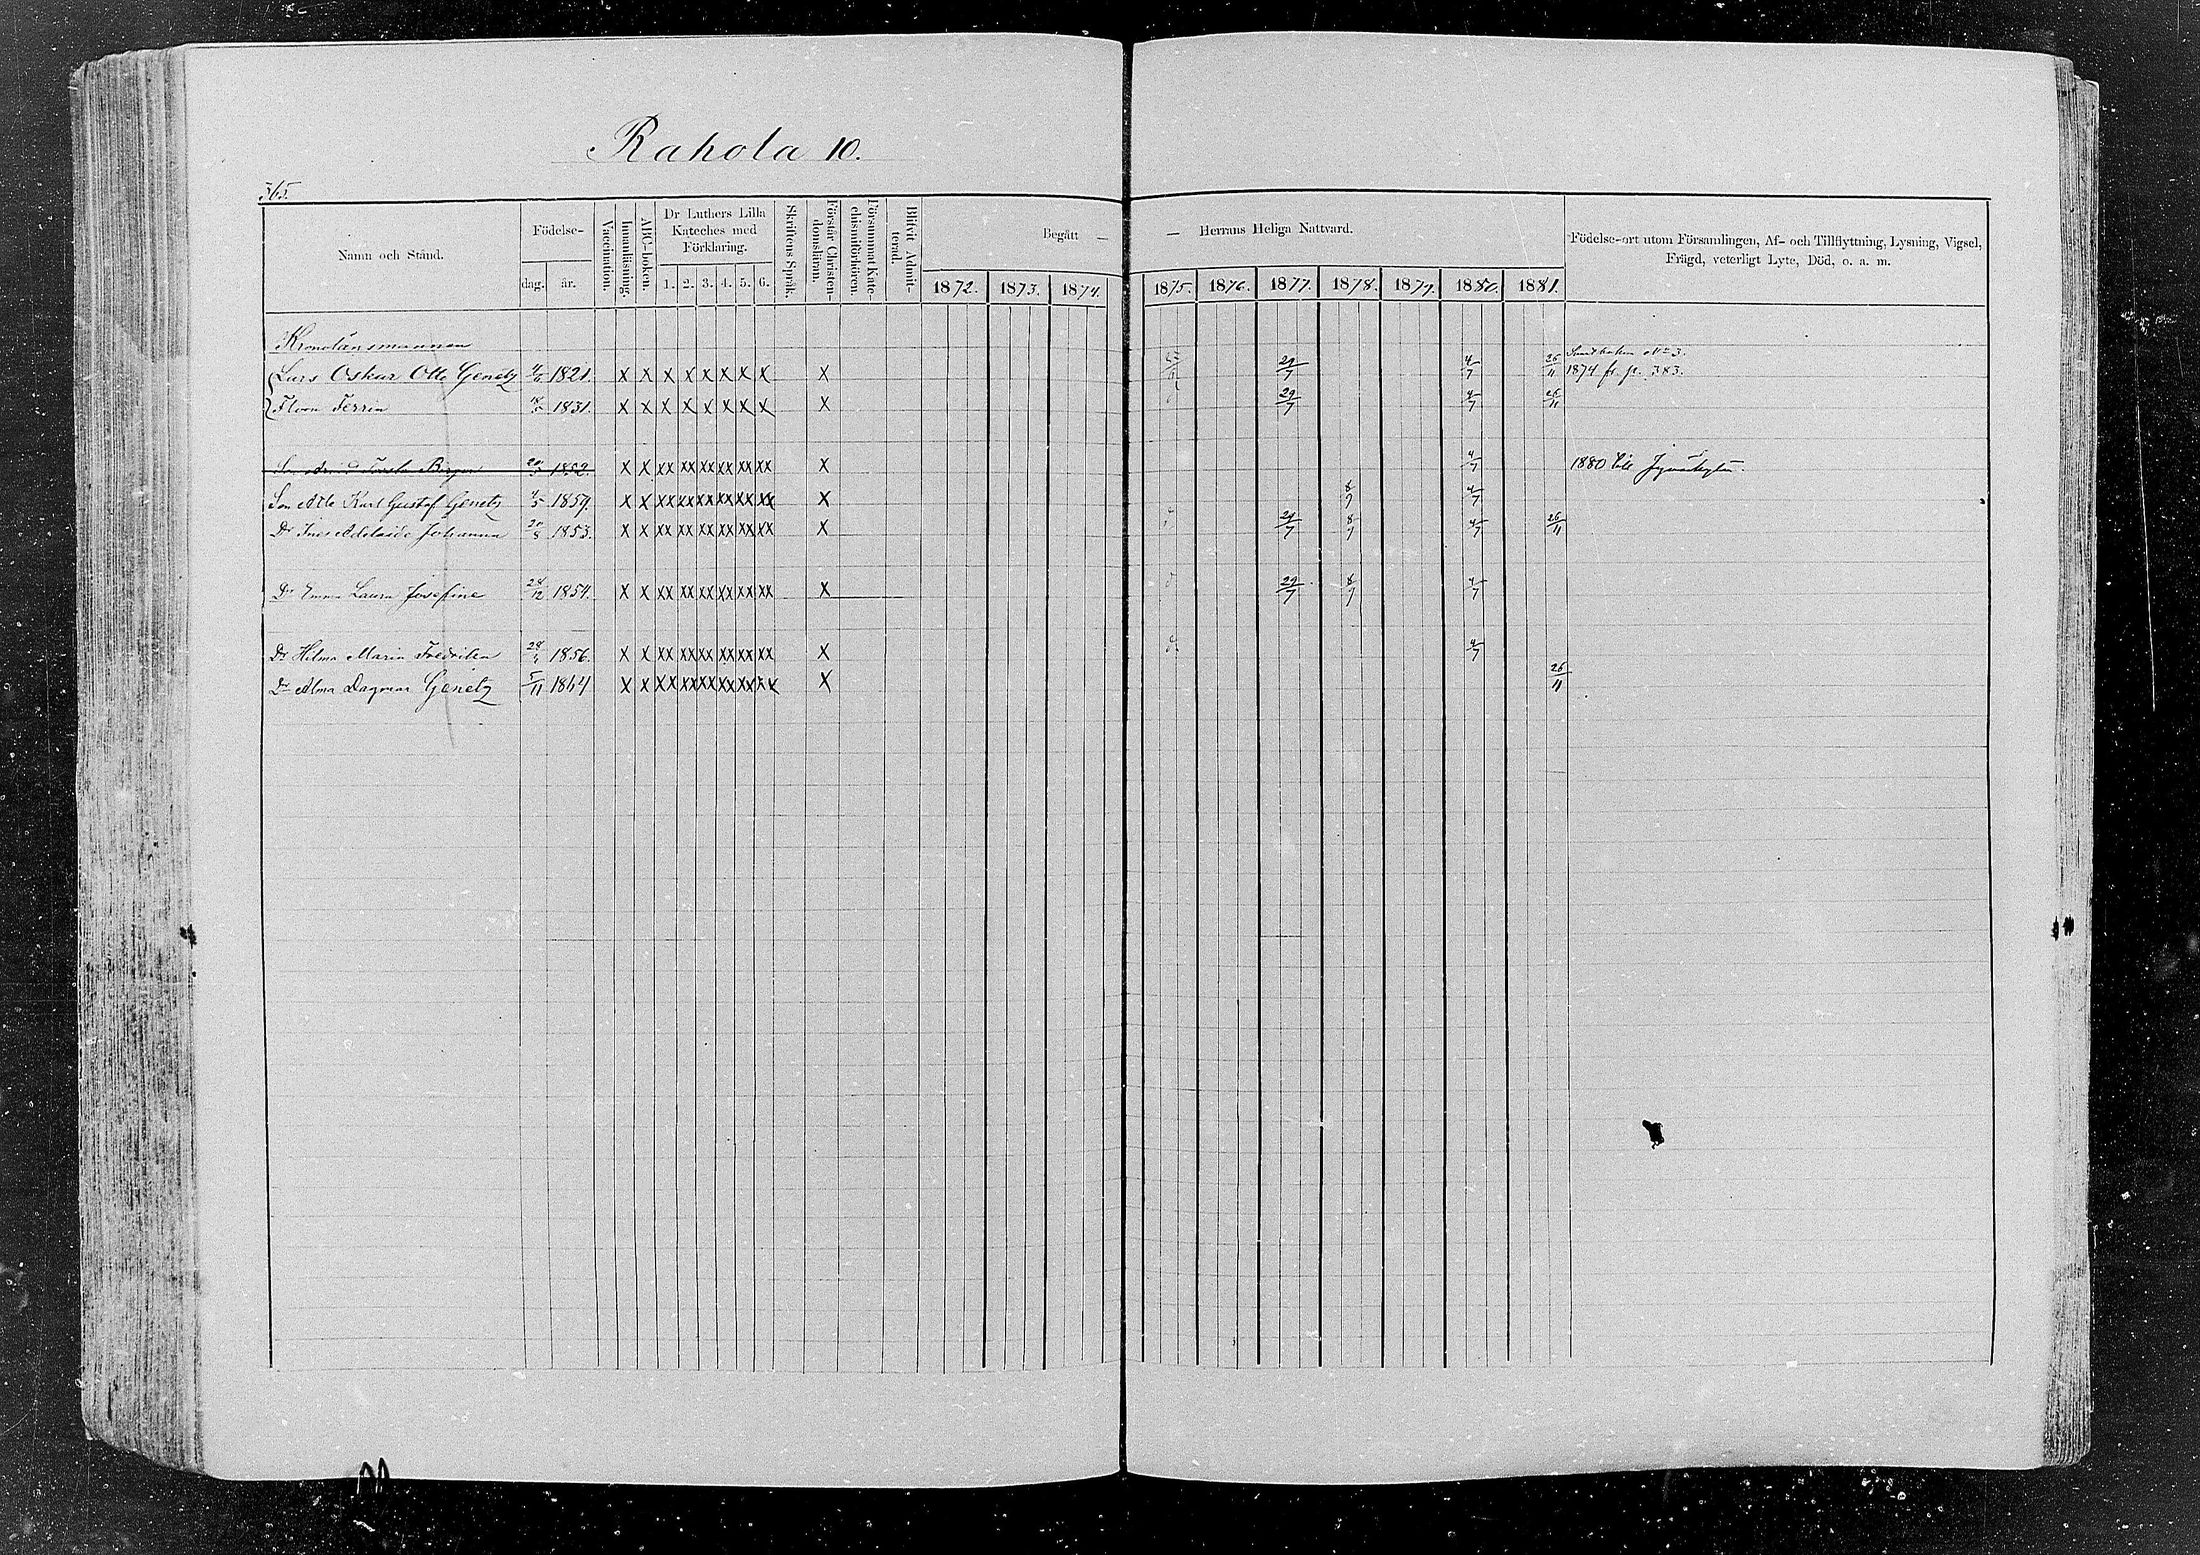 Rahola 10.
365.
Namn och Stånd.
Födelse-
dag. år.
Vaccination.
Innanläsning.
ABC-boken.
Dr Luthers Lilla Kateches med Förklaring.
1. 2. 3. 4. 5. 6.
Skriftens Språk.
Förstår Christendomsläran.
Försummat Katechismiförhören.
Blifvit Admitterad
Begått — — Herrans Heliga Nattvard.
1872. 1873. 1874. 1875. 1876. 1877. 1878. 1879. 1880. 1881.
Födelse-ort utom Församlingen, Af- och Tillflyttning, Lysning, Vigsel,
Frägd, veterligt Lyte, Död, o. a. m.
Kronolänsmannen
Lars Oskar Otto Genetz 1821. x x x x x x x x x 29/7 4/7 26/11 1874 fr. p. 383.
1831. x x x x x x x x x 29/7 4/7 26/11
Birger 1852. x x xx xx xx xx xx xx x 4/7 1880 till Jyväskylä.
Son Atle Karl Gustaf Genetz 1859. x x xx xx xx xx xx xx x 8/7 4/7
Dr Ines Adelaide Johanna 20/8 1853. x x xx xx xx xx xx xx x 29/7 8/7 4/7 26/11
Dr Emma Laura Josefine 24/12 1854. x x xx xx xx xx xx xx x 29/7 8/7 4/7
Dr Hilma Maria Fredrika 1856. x x xx xx xx xx xx xx x 4/7
Dr Alma Dagmar Genetz 5/11 1864 x x xx xx xx xx xx xx x 26/11